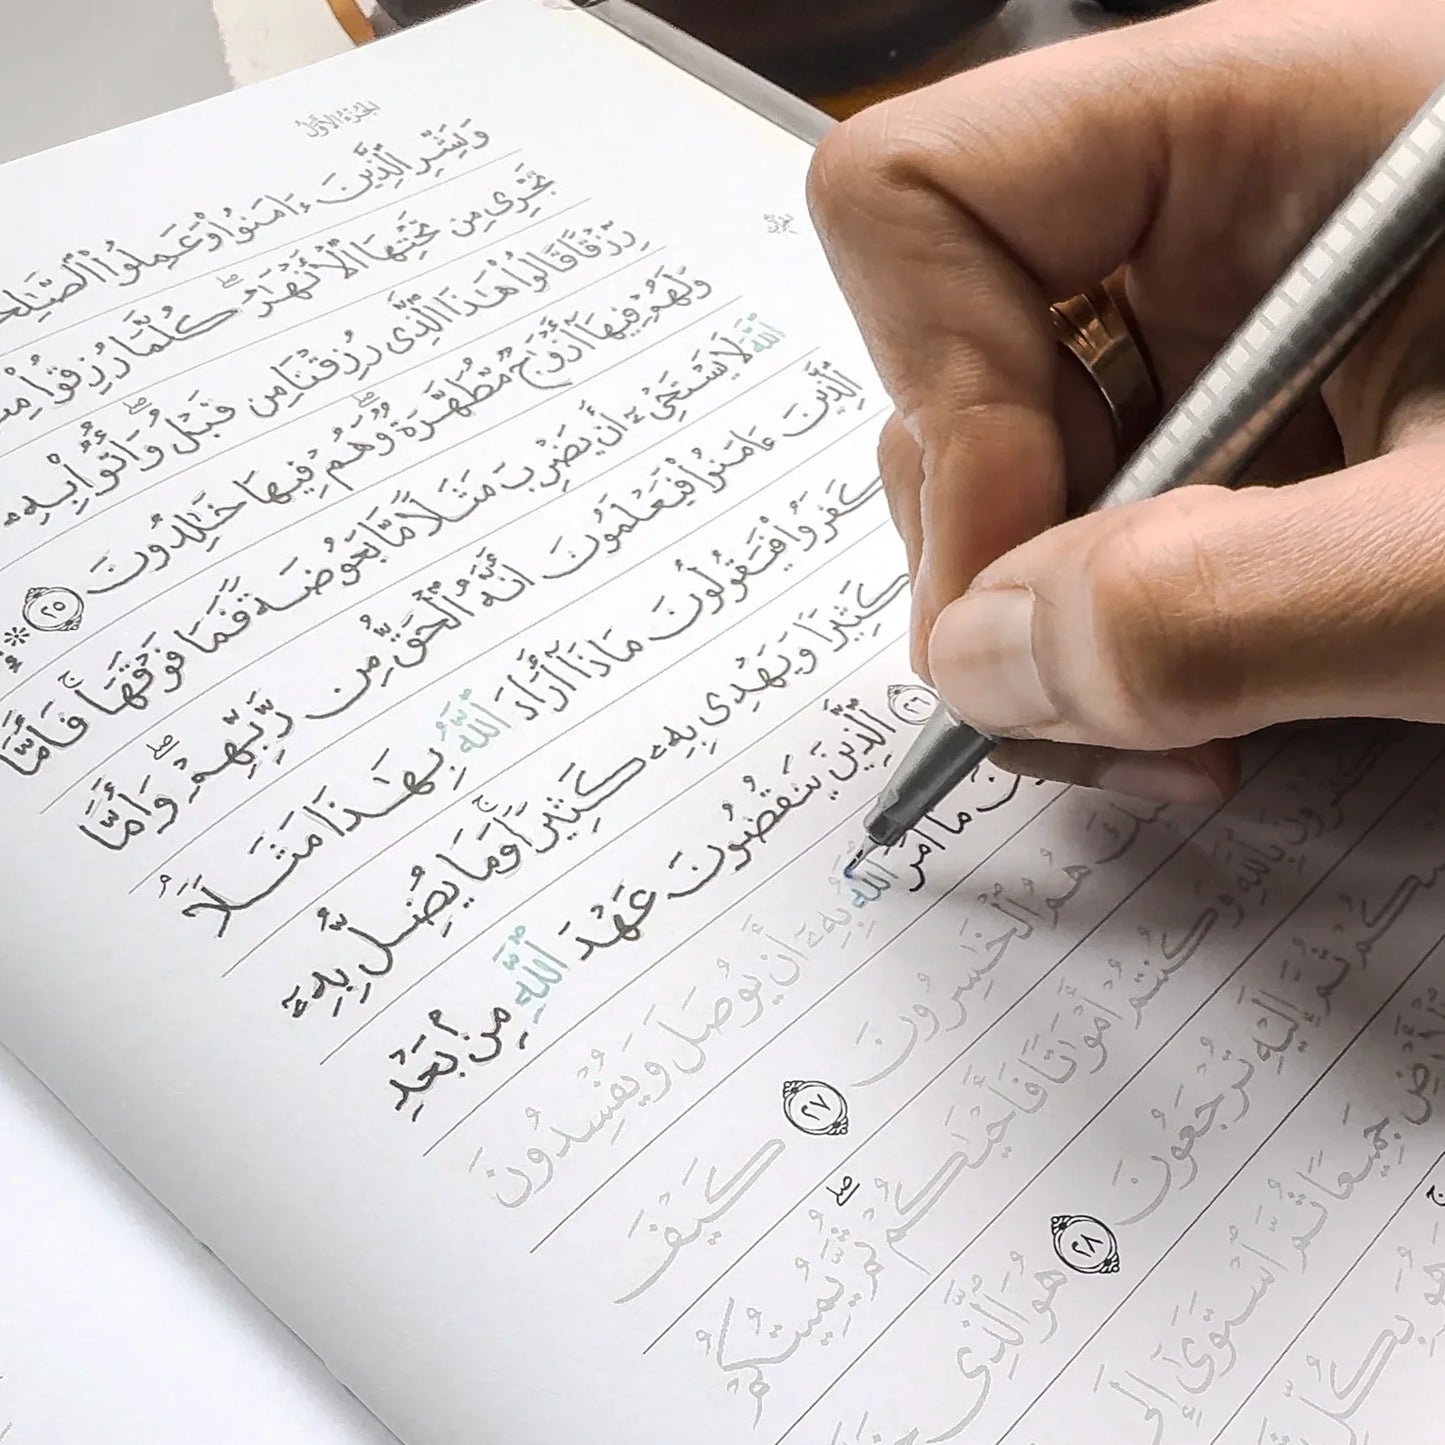 الجزء الأول
وَبَشِّرِ ٱلَّذِينَ ءَامَنُوا۟ وَعَمِلُوا۟
تَجْرِى مِن تَحْتِهَا ٱلْأَنْهَٰرُ ۖ كُلَّمَا رُزِقُوا۟
رِّزْقًا قَالُوا۟ هَٰذَا ٱلَّذِى رُزِقْنَا مِن قَبْلُ ۖ وَأُتُوا۟ بِهِۦ
وَلَهُمْ فِيهَآ أَزْوَٰجٌ مُّطَهَّرَةٌ ۖ وَهُمْ فِيهَا خَٰلِدُونَ ٢٥ *
ٱللَّهَ لَا يَسْتَحْىِۦٓ أَن يَضْرِبَ مَثَلًا مَّا بَعُوضَةً فَمَا فَوْقَهَا ۚ فَأَمَّا
ٱلَّذِينَ ءَامَنُوا۟ فَيَعْلَمُونَ أَنَّهُ ٱلْحَقُّ مِن رَّبِّهِمْ ۖ وَأَمَّا
كَفَرُوا۟ فَيَقُولُونَ مَاذَآ أَرَادَ ٱللَّهُ بِهَٰذَا مَثَلًا ۘ
كَثِيرًا وَيَهْدِى بِهِۦ كَثِيرًا ۚ وَمَا يُضِلُّ بِهِۦٓ
٢٦ ٱلَّذِينَ يَنقُضُونَ عَهْدَ ٱللَّهِ مِنۢ بَعْدِ
مَآ أَمَرَ ٱللَّهُ بِهِۦٓ أَن يُوصَلَ وَيُفْسِدُونَ
هُمُ ٱلْخَٰسِرُونَ ٢٧ كَيْفَ
تَكْفُرُونَ بِٱللَّهِ وَكُنتُمْ أَمْوَٰتًا فَأَحْيَٰكُمْ ۖ ثُمَّ يُمِيتُكُمْ
ثُمَّ إِلَيْهِ تُرْجَعُونَ ٢٨ هُوَ ٱلَّذِى
جَمِيعًا ثُمَّ ٱسْتَوَىٰٓ إِلَى
وَهُوَ بِكُلِّ